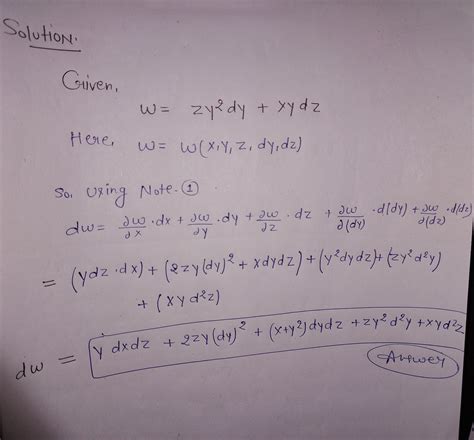 Solution.
Given,
w = zy²dy + xydz
Here, w = w(x,y,z,dy,dz)
So, using Note-①
dw = ∂w/∂x · dx + ∂w/∂y · dy + ∂w/∂z · dz + ∂w/∂(dy) · d(dy) + ∂w/∂(dz) · d(dz)
= (ydz·dx) + (2zy(dy)² + xdydz) + (y²dydz) + (zy²d²y)
+ (xyd²z)
dw = y dxdz + 2zy(dy)² + (x+y²)dydz + zy²d²y + xyd²z
Answer